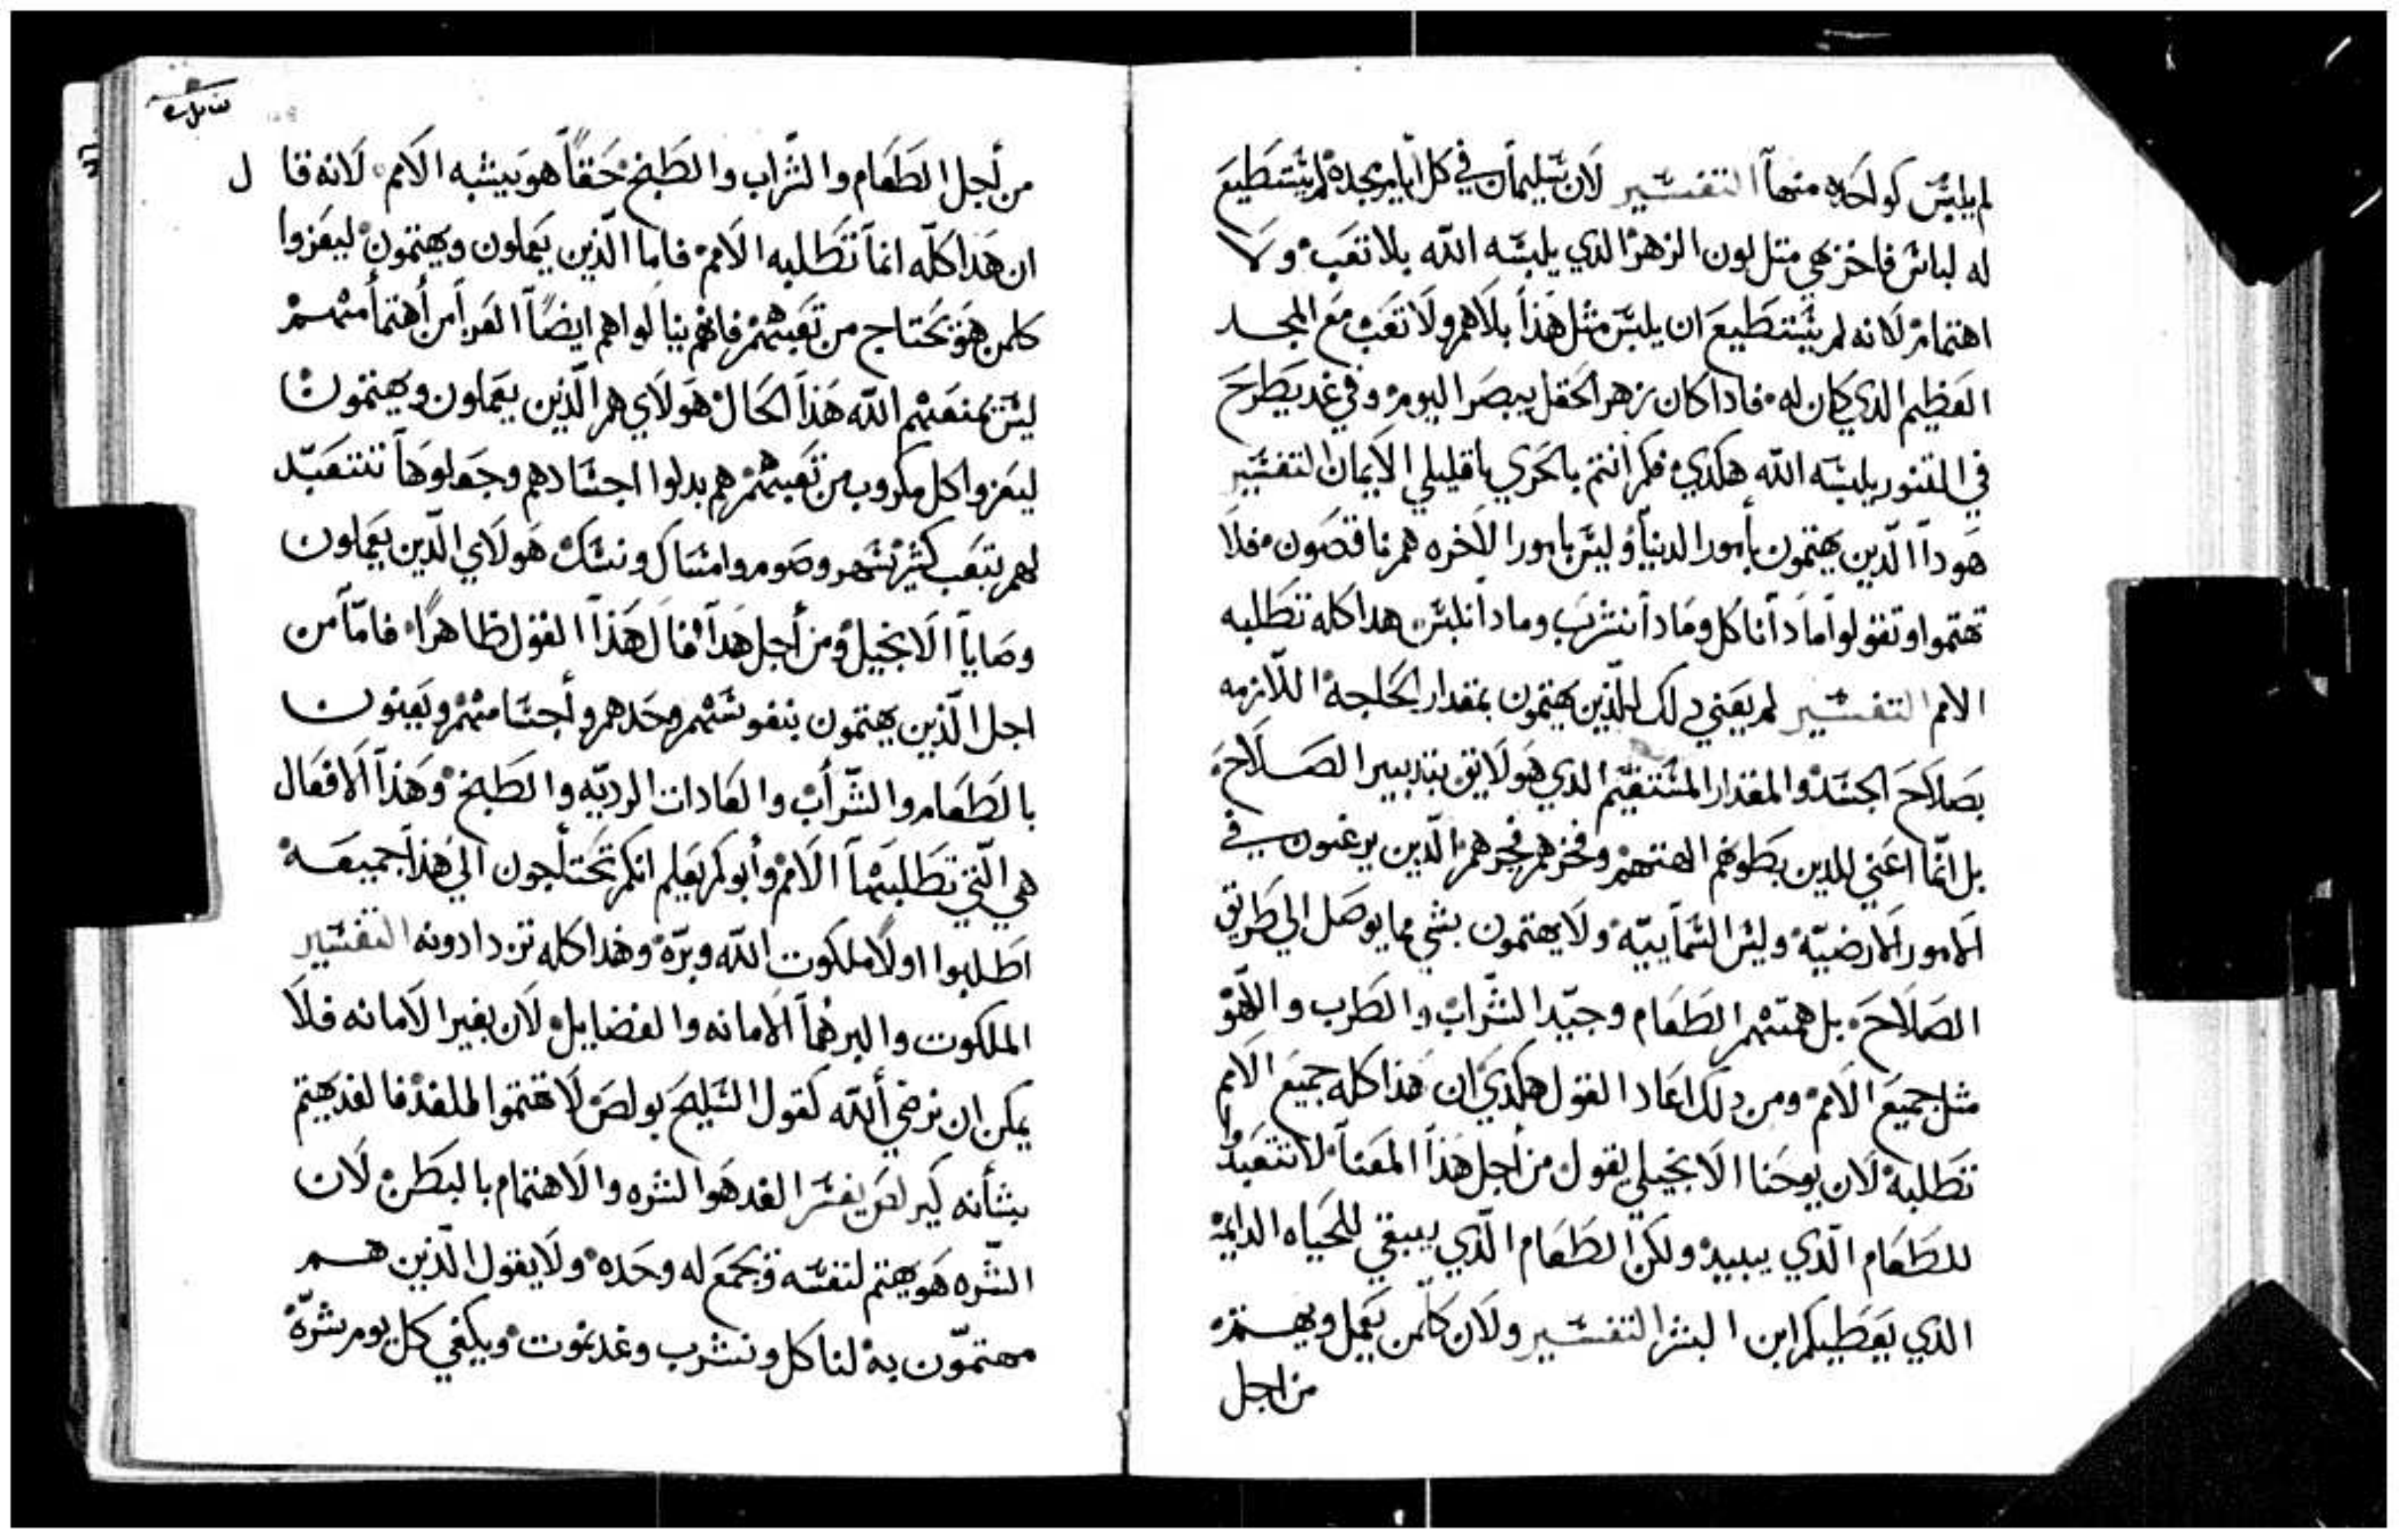 لم يلبس كواحده منها التفسير لان سليمان في كل ايام مجده لم يستطيع
له لباس فاخر بهي متل لون الزهر الذي يلبسه الله بلا تعب ولا
اهتمام لانه لم يستطيع ان يلبس مثل هذا بلا هم ولا تعب مع المجد
العظيم الدي كان له فادا كان زهر الحقل يبصر اليوم وفي غد يطرح
في التنور يلبسه الله هكدي فكم انتم بالحري يا قليلي الايمان التفسير
هودا الدين يهتمون بأمور الدنيا وليس بامور الاخره هم ناقصون فلا
تهتموا وتقولوا مادا ناكل ومادا نشرب ومادا نلبس هدا كله تطلبه
الامم التفسير لم يعني دلك للذين يهتمون بمقدار الحاجة اللازمه
بصلاح الجسد والمقدار المستقيم الدي هو لايق بتدبير الصلاح
بل انما اعني للدين بطونهم الهتهم وفخرهم فجرهم الدين يرغبون في
الامور الارضيه وليس السماييه ولا يهتمون بشي مما يوصل الي طريق
الصلاح بل همتهم الطعام وجيد الشراب والطرب واللهو
مثل جميع الامم ومن دلك اعاد القول هكدي ان هذا كله جميع الامم
تطلبه لان يوحنا الانجيلي يقول من اجل هذا المعنا لا تتعبدوا
للطعام الدي يبيد ولكن الطعام الذي يبقي للحياه الدايمه
الذي يعطيكم ابن البشر التفسير ولان كلمن يعمل ويهتم
من اجل
من أجل الطعام والشراب والطبخ حقاً هو يشبه الامم لانه قال
ان هدا كله انما تطلبه الامم فاما الذين يعملون ويهتمون ليعزوا
كلمن هو محتاج من تعبهم فانهم ينالواهم ايضاً العزا من أهتما منهم
ليس يمنعهم الله هذا الحال هولاي هم الذين يعملون ويهتمون
ليعزوا كل مكروب من تعبهم هم بدلوا اجسادهم وجعلوها تتعبد
لهم بتعب كثير سهر وصوم وامساك ونسك هولاي الدين يعملون
وصايا الانجيل ومن أجل هدا قال هذا القول ظاهراً فاما من
اجل الذين يهتمون بنفوسهم وحدهم وأجسامهم ويعنون
بالطعام والشراب والعادات الرديه والطبخ وهذا الافعال
هي التي تطلبها الامم وأبوكم يعلم انكم تحتاجون الي هذا جميعه
اطلبوا اولا ملكوت الله وبره وهذا كله تزدادونه التفسير
الملكوت والبر هما الامانه والفضايل لان بغير الامانه فلا
يمكن ان نرضي الله كقول السليح بولص لا تهتموا للغد فالغد يهتم
بشأنه كيرلص يفسر الغد هو الشره والاهتمام بالبطن لان
الشره هو يهتم لنفسه ويجمع له وحده ولا يقول الذين هم
مهتمون به لناكل ونشرب وغد نموت ويكفي كل يوم شره